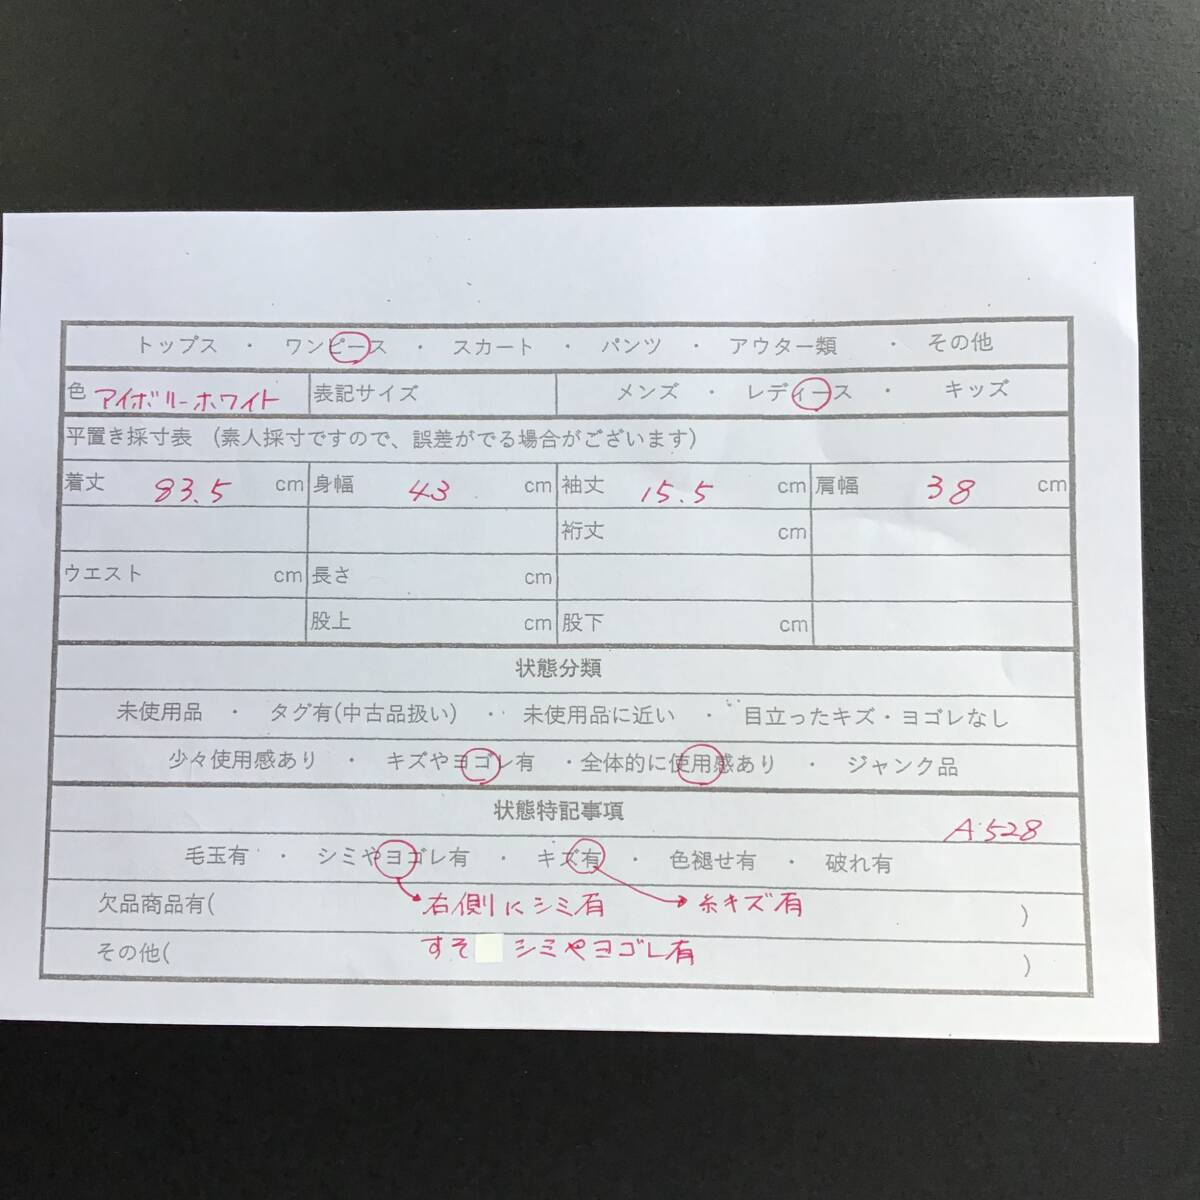 トップス ・ ワンピース ・ スカート ・ パンツ ・ アウター類 ・ その他
色 アイボリーホワイト 表記サイズ メンズ ・ レディース ・ キッズ
平置き採寸表 (素人採寸ですので、誤差がでる場合がございます)
着丈 83.5 cm 身幅 43 cm 袖丈 15.5 cm 肩幅 38 cm
裄丈 cm
ウエスト cm 長さ cm
股上 cm 股下 cm
状態分類
未使用品 ・ タグ有(中古品扱い) ・ 未使用品に近い ・ 目立ったキズ・ヨゴレなし
少々使用感あり ・ キズやヨゴレ有 ・全体的に使用感あり ・ ジャンク品
状態特記事項
A528
毛玉有 ・ シミやヨゴレ有 ・ キズ有 ・ 色褪せ有 ・ 破れ有
欠品商品有( 右側にシミ有 糸キズ有 )
その他( すそ シミやヨゴレ有 )